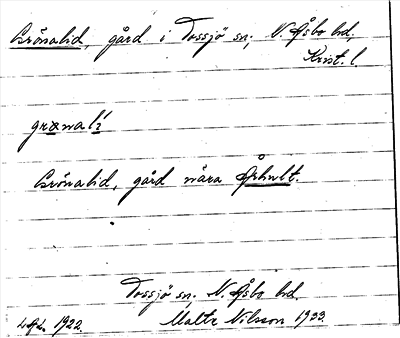 Grönalid, gård i Tossjö sn, N. Åsbo hd,
Krist. l.
grønalí
Grönalid, gård nära Århult.
Tossjö sn, N. Åsbo hd.
1922. Malte Nilsson 1933.